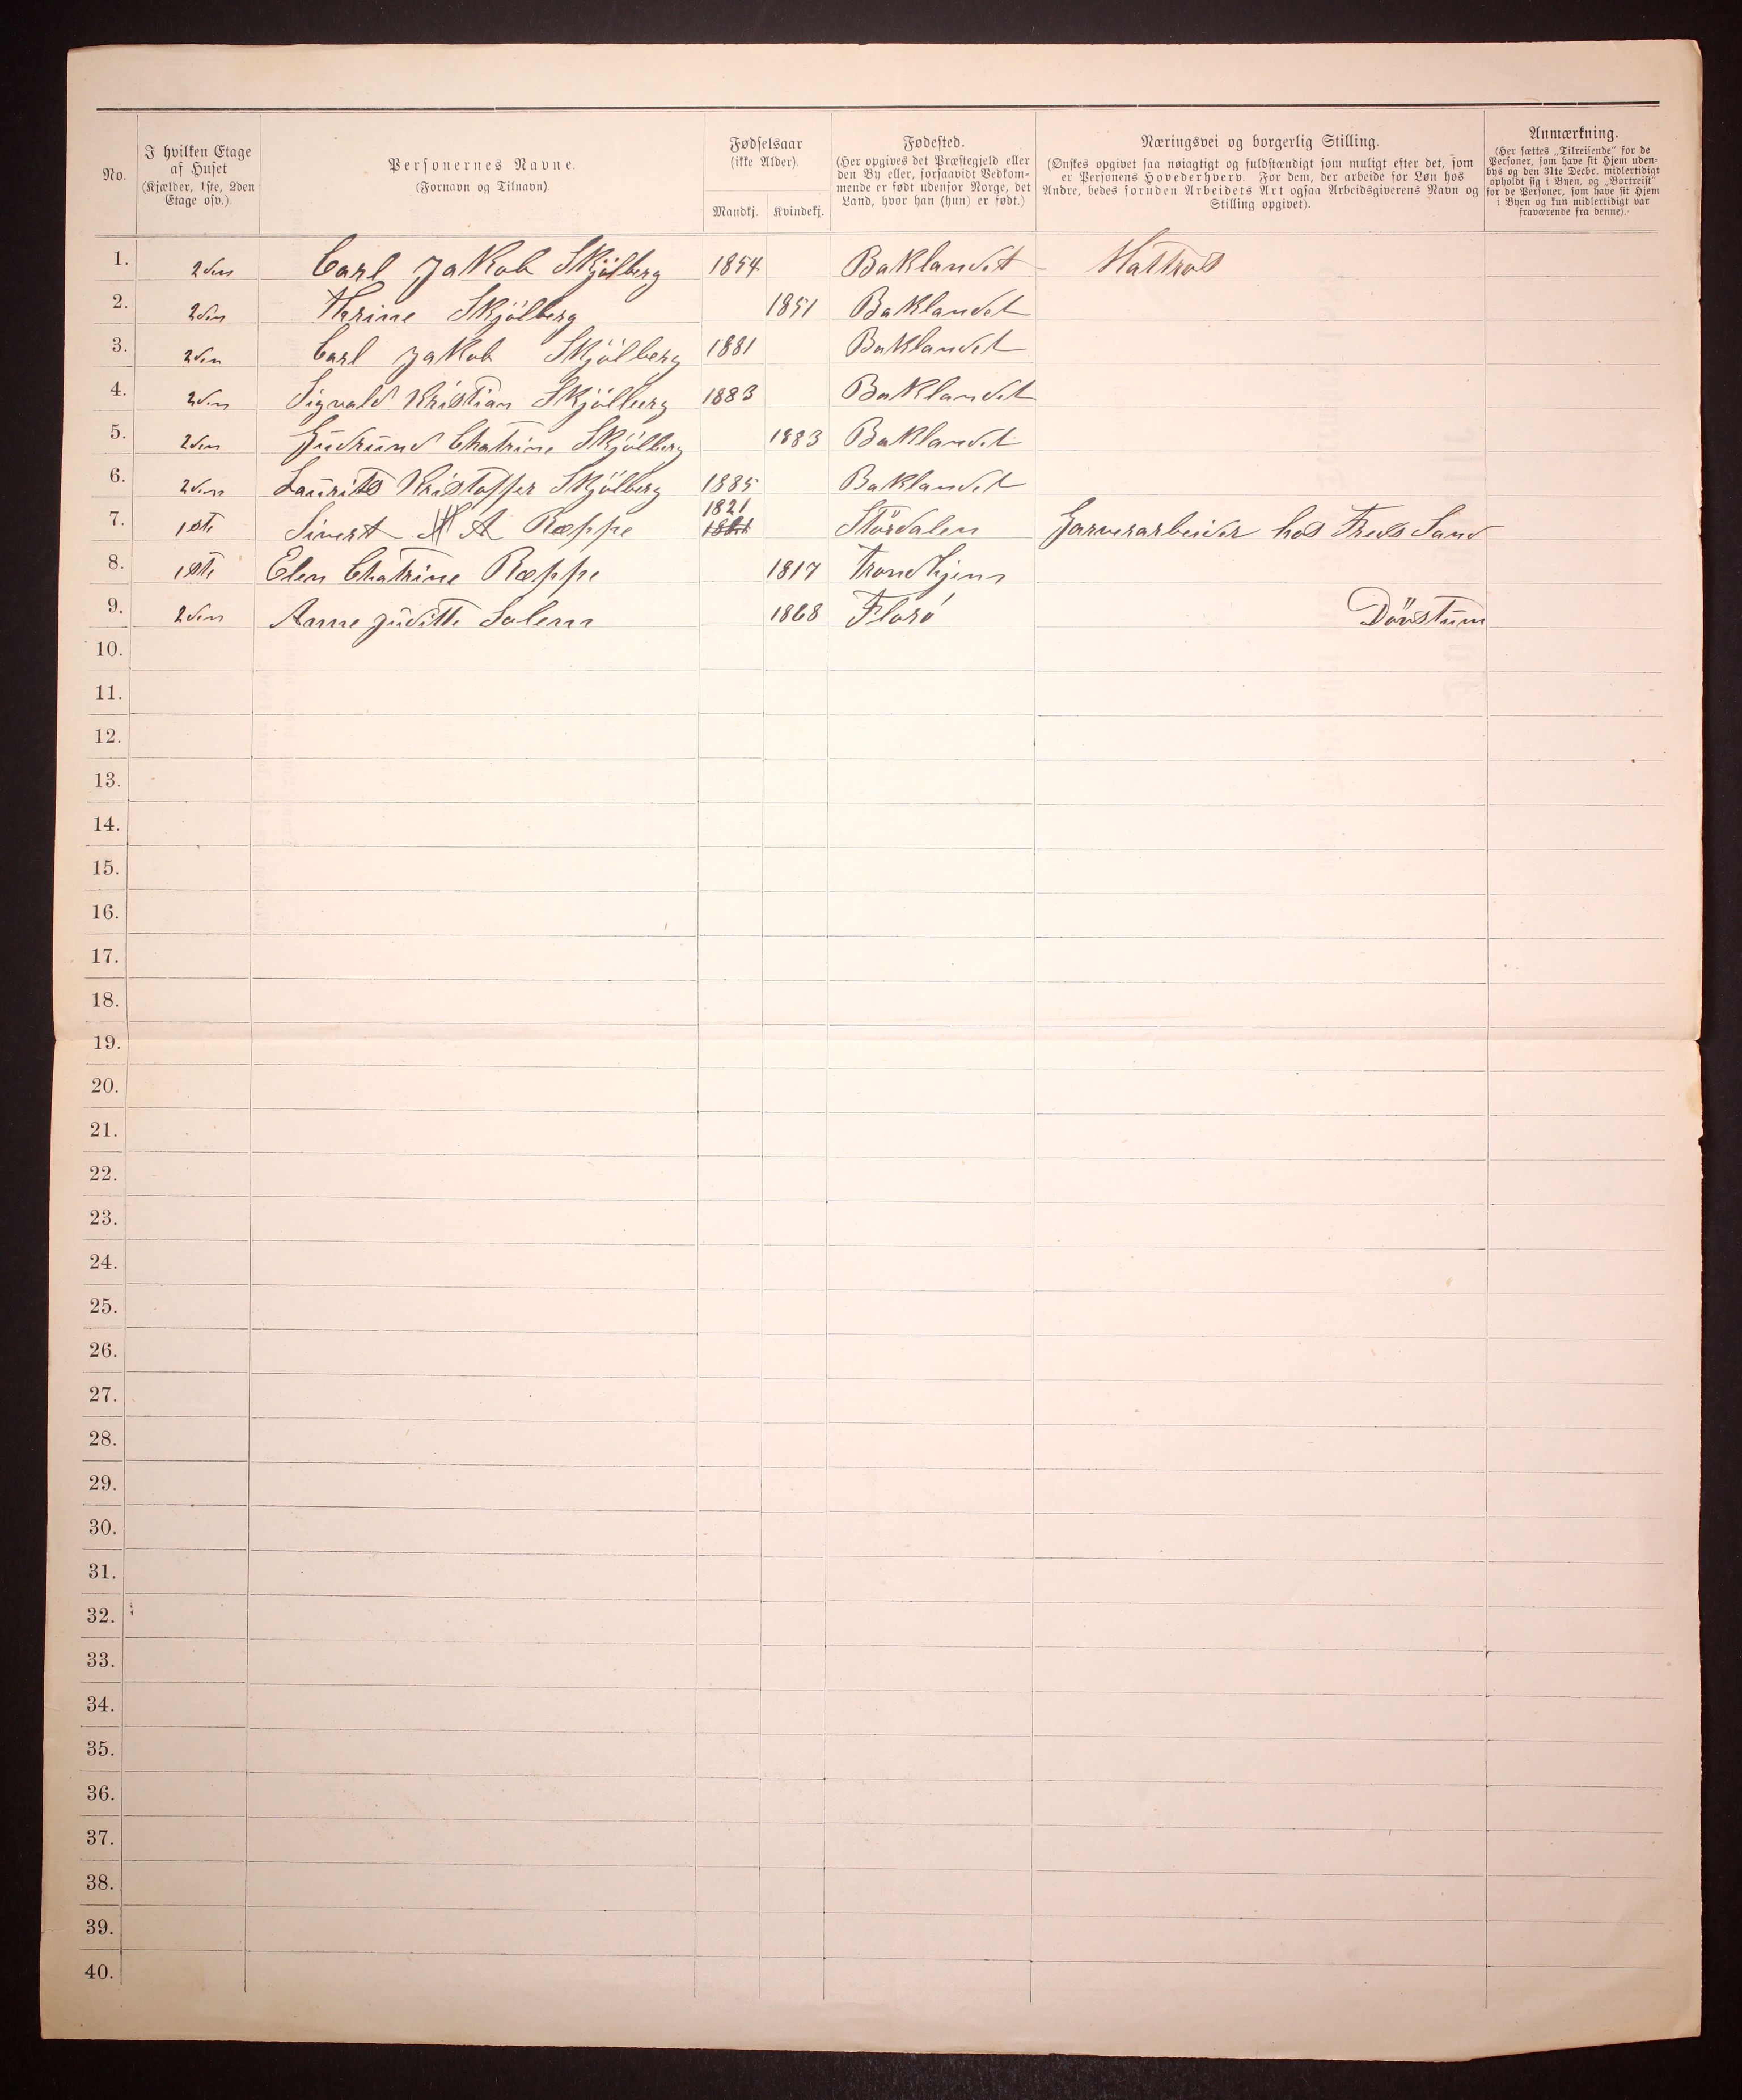 No.
I hvilken Etage
af Huset
(Kjælder, 1ste, 2den
Etage osv.).
Personernes Navne.
(Fornavn og Tilnavn).
Fødselsaar
(ikke Alder).
Mandkj. Kvindekj.
Fødested.
(Her opgives det Præstegjeld eller
den By eller, forsaavidt Vedkom-
mende er født udenfor Norge, det
Land, hvor han (hun) er født.)
Næringsvei og borgerlig Stilling.
(Ønskes opgivet saa nøiagtigt og fuldstændigt som muligt efter det, som
er Personens Hovederhverv. For dem, der arbeide for Løn hos
Andre, bedes foruden Arbeidets Art ogsaa Arbeidsgiverens Navn og
Stilling opgivet).
Anmærkning.
(Her sættes „Tilreisende" for de
Personer, som have sit Hjem uden-
bys og den 31te Decbr. midlertidigt
opholdt sig i Byen, og „Bortreist"
for de Personer, som have sit Hjem
i Byen og kun midlertidigt var
fraværende fra denne).
1. 2den Carl Jakob Skjölberg 1854 Baklandet Mattros
2. 2den Thrine Skjölberg 1851 Baklandet
3. 2den Carl Jakob Skjölberg 1881 Baklandet
4. 2den Sigvald Kristian Skjölberg 1883 Baklandet
5. 2den Gudrund Chatrine Skjölberg 1883 Baklandet
6. 2den Laurits Kristoffer Skjölberg 1885 Baklandet
7. 1ste Sivert A Ræppe 1821 Stördalen Garverarbeider hos Freds Sand
8. 1ste Elen Chatrine Ræppe 1817 Trondhjem
9. 2den Anne Juditte Solem 1868 Florö Dövstum
10.
11.
12.
13.
14.
15.
16.
17.
18.
19.
20.
21.
22.
23.
24.
25.
26.
27.
28.
29.
30.
31.
32.
33.
34.
35.
36.
37.
38.
39.
40.